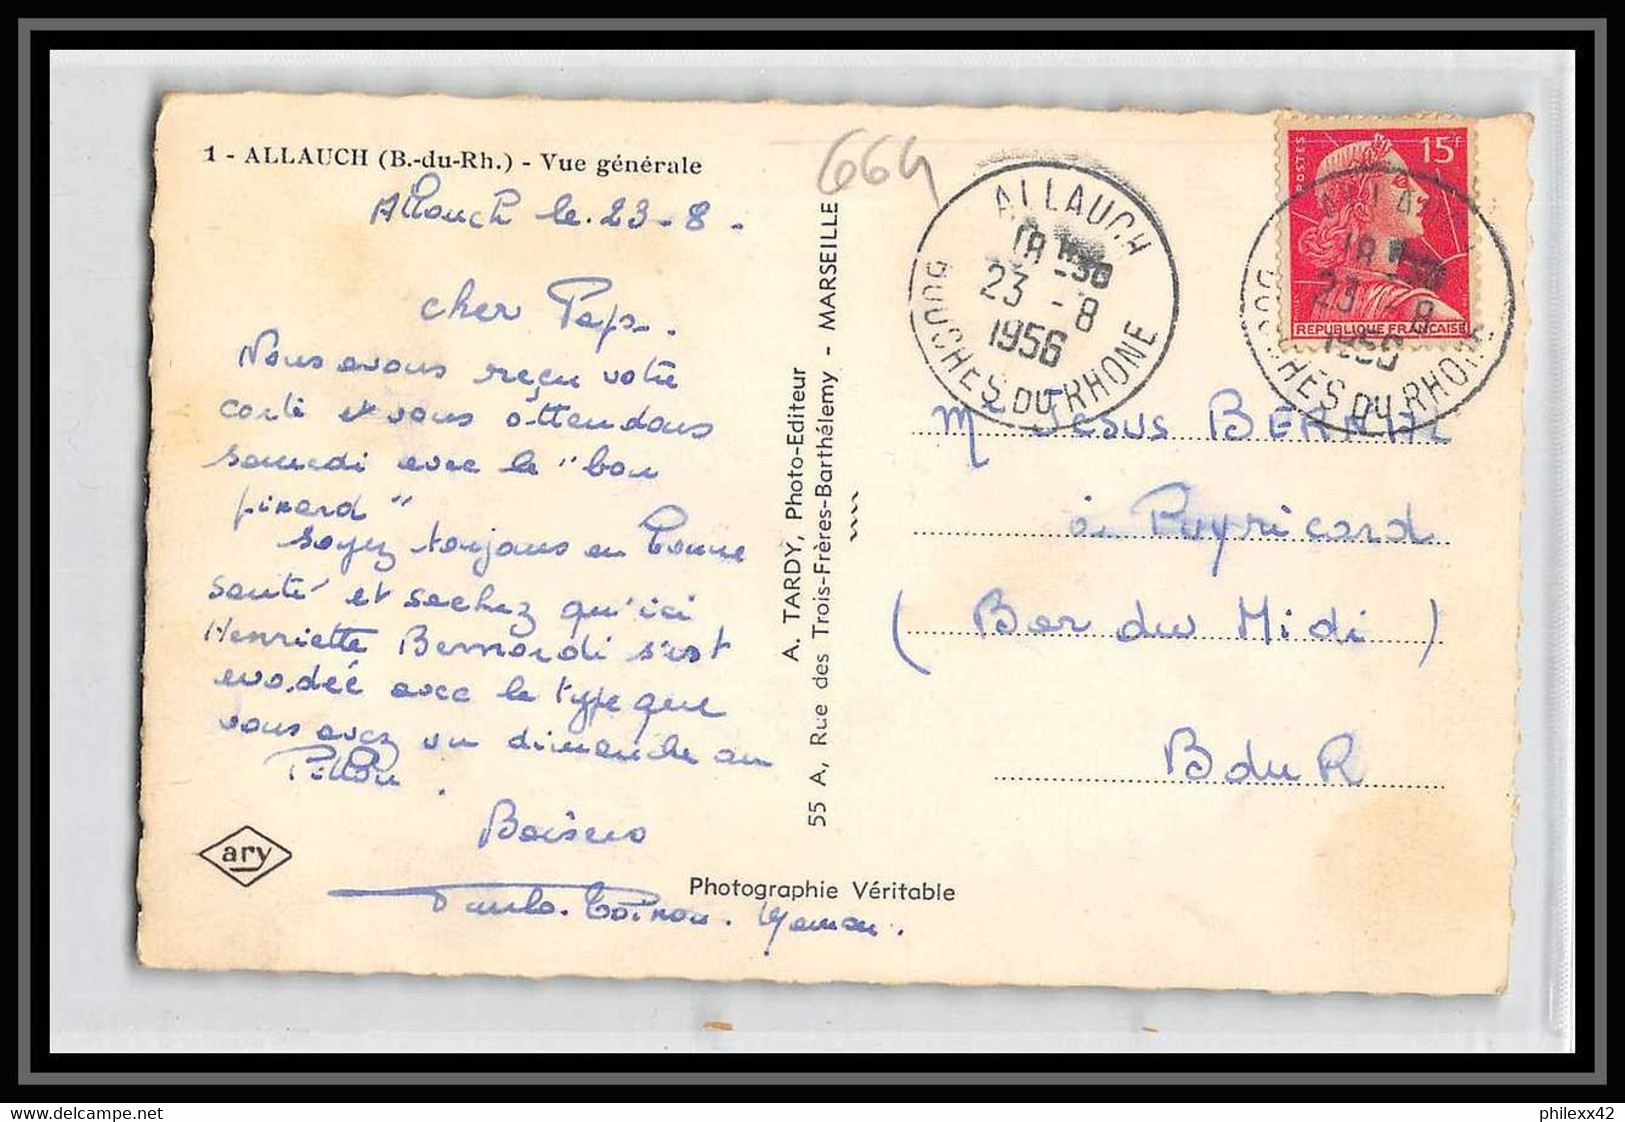 1 - ALLAUCH (B.-du-Rh.) - Vue générale
Allauch le. 23-8.
cher Papa.
Nous avons reçu votre
carte et vous attendons
samedi avec le "bon
pinard"
soyez toujours en bonne
santé et sachez qu'ici
Henriette Bernardi s'est
evadée avec le type que
vous avez vu dimanche au
Pitton.
Baisers
ary
Photographie Véritable
A. TARDY, Photo-Editeur
55 A, Rue des Trois-Frères-Barthélemy - MARSEILLE
664
ALLAUCH
18 H 30
23 - 8
1956
BOUCHES DU RHONE
POSTES
15F
REPUBLIQUE FRANCAISE
ALLAUCH
18 H 30
23 - 8
1956
BOUCHES DU RHONE
Mr JESUS BERNAL
à Puyricard
(Bar du Midi)
B du R
philexx42